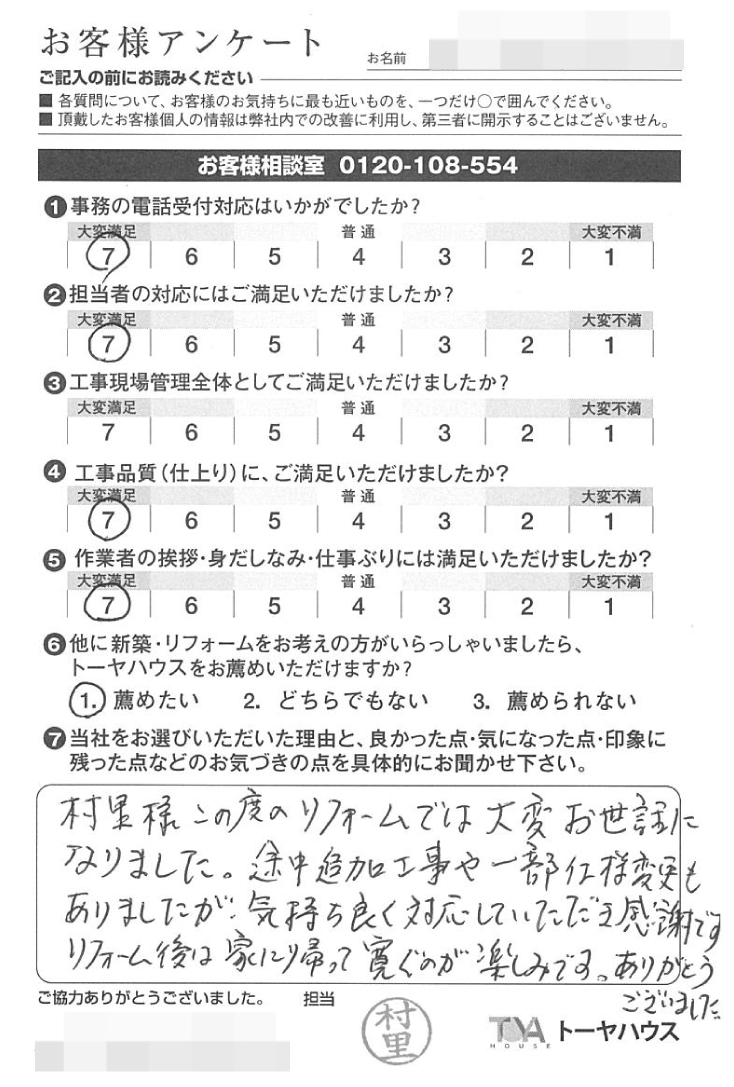 お客様アンケート
お名前
ご記入の前にお読みください
■ 各質問について、お客様のお気持ちに最も近いものを、一つだけ○で囲んでください。
■ 頂戴したお客様個人の情報は弊社内での改善に利用し、第三者に開示することはございません。
お客様相談室 0120-108-554
❶事務の電話受付対応はいかがでしたか?
大変満足 普通 大変不満
7 6 5 4 3 2 1
❷担当者の対応にはご満足いただけましたか?
大変満足 普通 大変不満
7 6 5 4 3 2 1
❸工事現場管理全体としてご満足いただけましたか?
大変満足 普通 大変不満
7 6 5 4 3 2 1
❹ 工事品質(仕上り)に、ご満足いただけましたか?
大変満足 普通 大変不満
7 6 5 4 3 2 1
❺ 作業者の挨拶・身だしなみ・仕事ぶりには満足いただけましたか?
大変満足 普通 大変不満
7 6 5 4 3 2 1
❻他に新築・リフォームをお考えの方がいらっしゃいましたら、
トーヤハウスをお薦めいただけますか?
1. 薦めたい 2. どちらでもない 3. 薦められない
❼当社をお選びいただいた理由と、良かった点・気になった点・印象に
残った点などのお気づきの点を具体的にお聞かせ下さい。
村里様この度のリフォームでは大変お世話に
なりました。途中追加工事や一部仕様変更も
ありましたが、気持ち良く対応していただき感謝です
リフォーム後は家に帰って寛ぐのが楽しみです。ありがとう
ございました
ご協力ありがとうございました。 担当
村里
TOYA HOUSE トーヤハウス